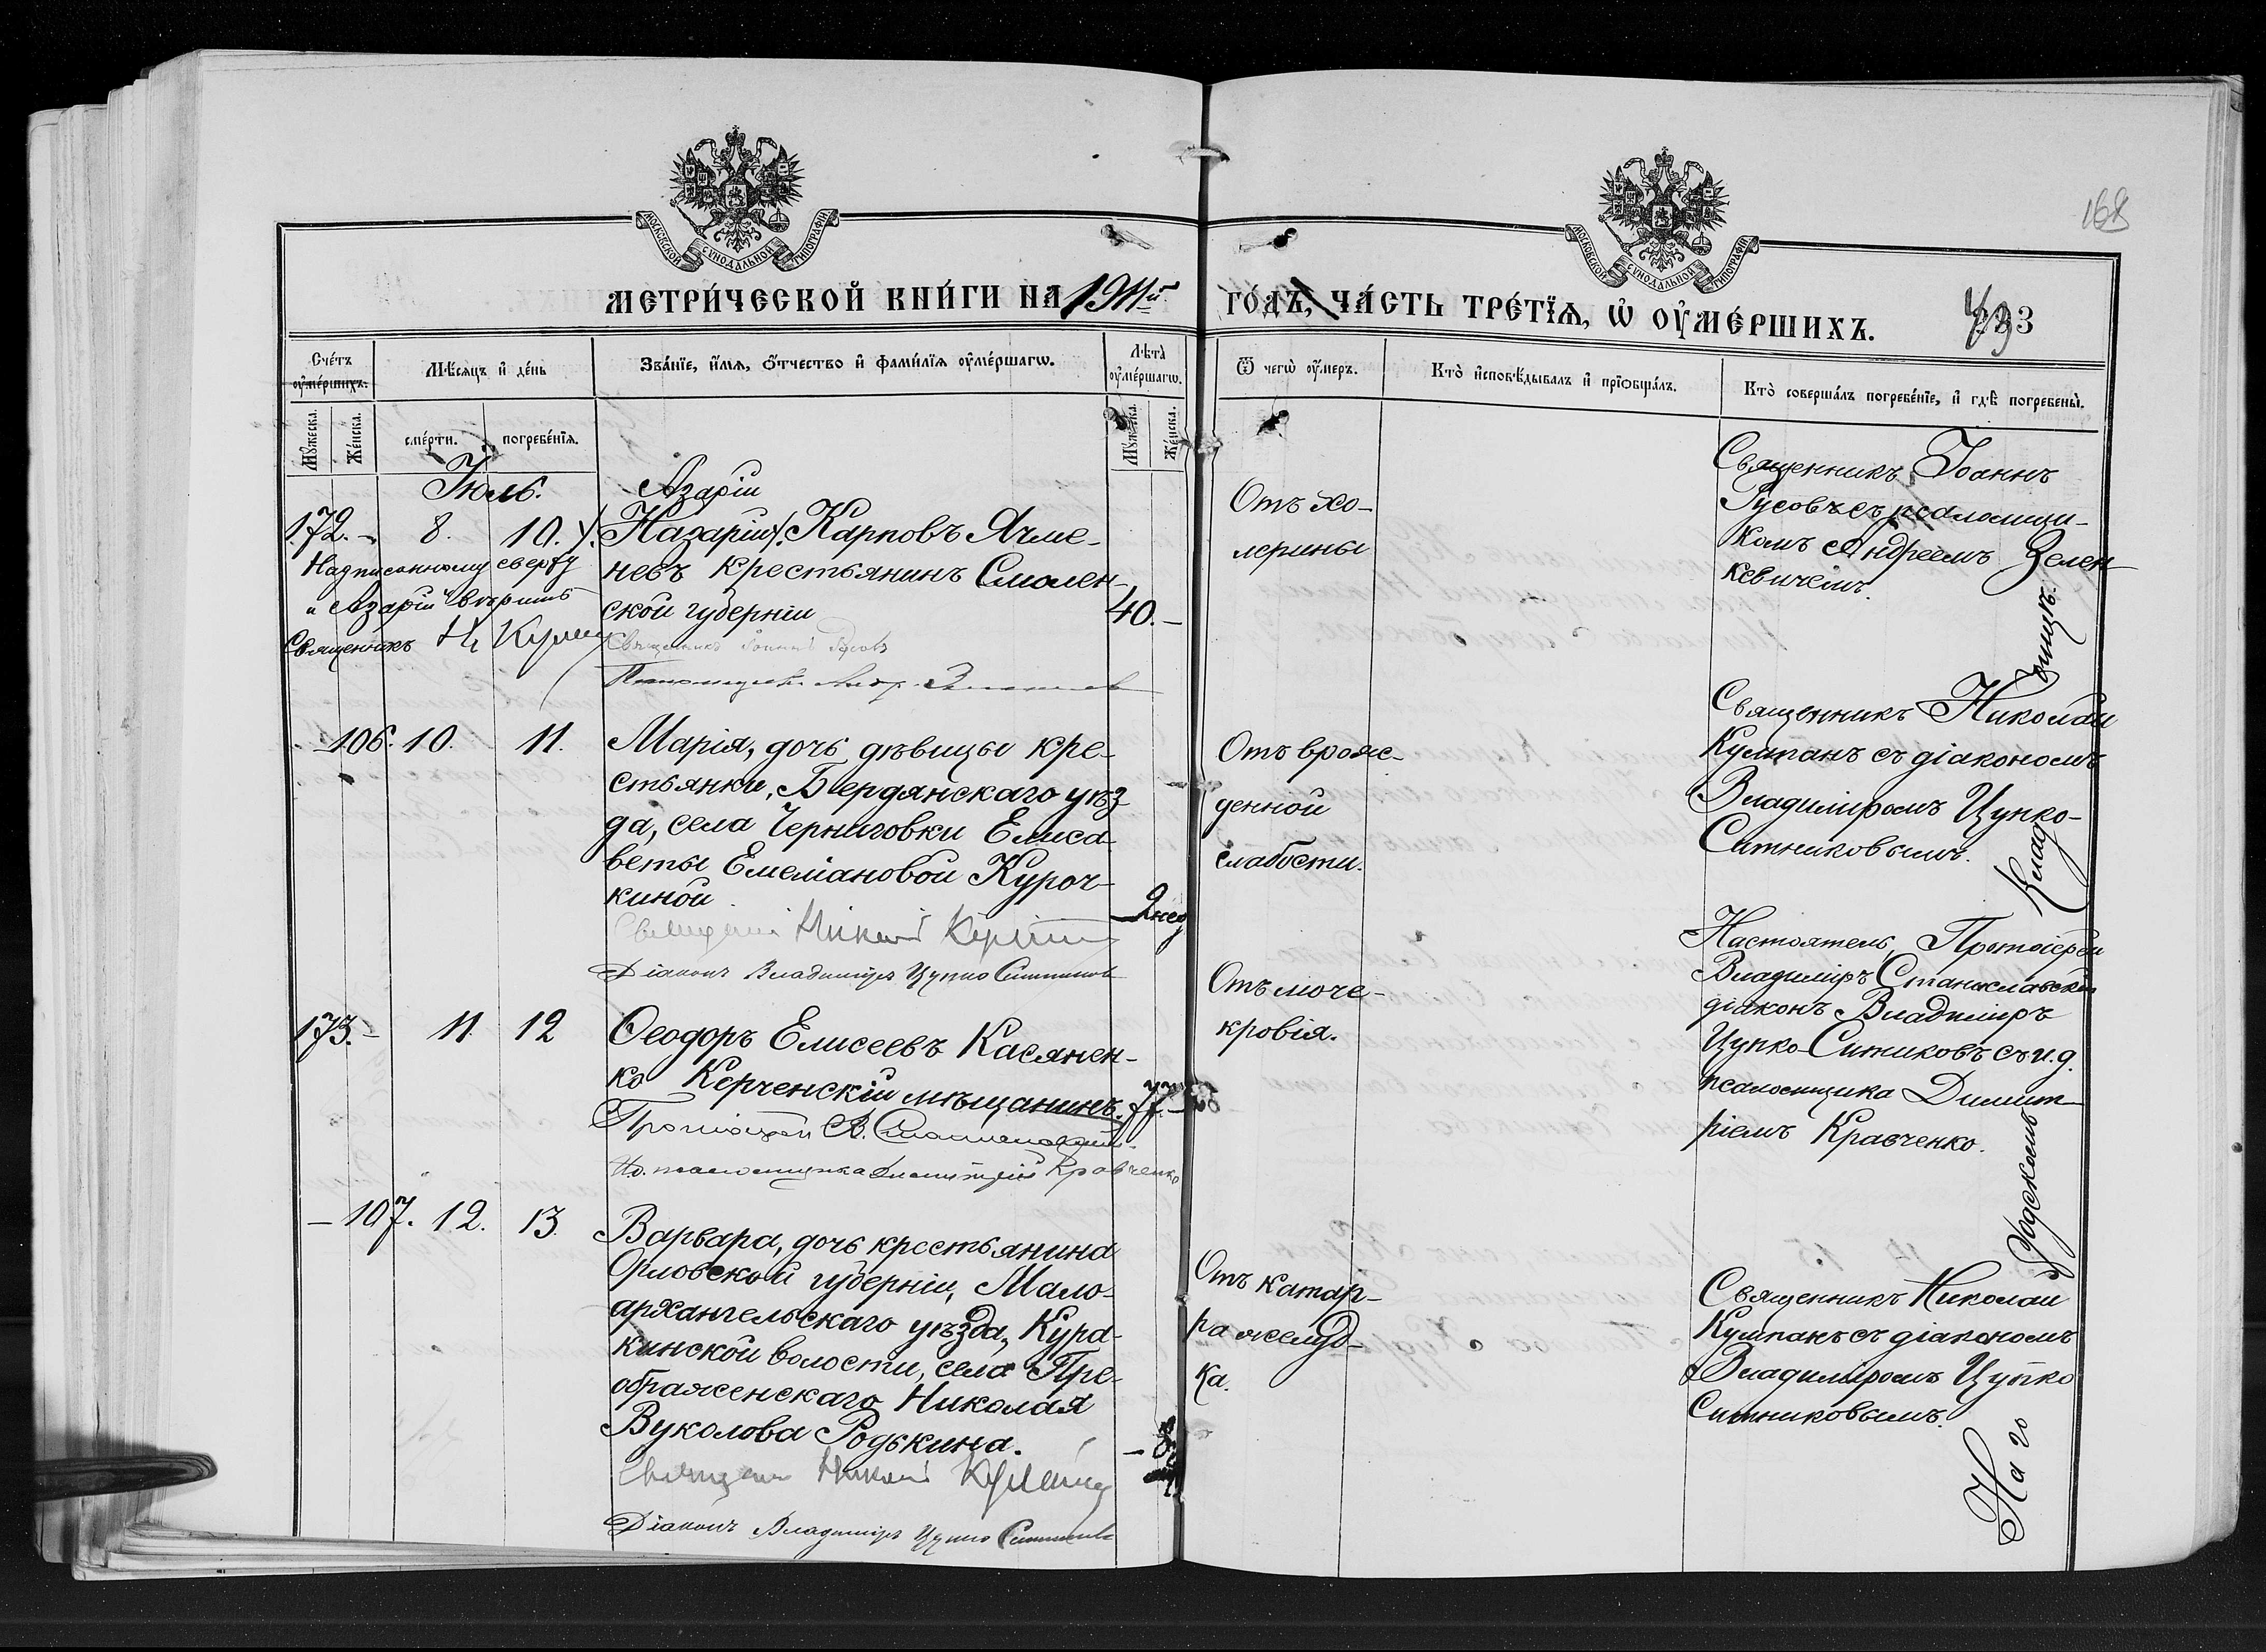 168
МОСКОВСКОЙ СУНОДАЛЬНОЙ ТИПОГРАФІИ
МОСКОВСКОЙ СУНОДАЛЬНОЙ ТИПОГРАФІИ
МЕТРИ́ЧЕСКОЙ КНИ́ГИ НА 1911й ГО́ДЪ, ЧА́СТЬ ТРЕ́ТІѦ, Ѡ҆ ОУ҆МЕ́РШИХЪ.
Сче́тъ оу҆ме́ршихъ.
Мꙋжеска.
Же́нска.
Мѣ́сяцъ и҆ де́нь
сме́рти.
погребе́нїѧ.
Зва́нїе, и҆́мѧ, ѻ҆́тчество и҆ фами́лїѧ оу҆ме́ршагѡ.
Лѣта̀ оу҆ме́ршагѡ.
Мꙋжеска.
Же́нска.
Ѿ чегѡ̀ оу҆́меръ.
Кто̀ и҆сповѣ́дывалъ и҆ прїѻбща́лъ.
Кто̀ соверша́лъ погребе́нїе, и҆ гдѣ̀ погребены̀.
Іюль.
172. - 8. 10.
Надписанному сверху
„Азарій" вѣрить
Священникъ
Азарій
Назарій Карповъ Ячме-
невъ крестьянинъ Смолен-
ской губерніи
40. -
Священникъ Іоаннъ Русовъ
Отъ хо-
лерины
Священникъ Іоаннъ
Русовъ съ псаломщи-
комъ Андреемъ Зелен
кевичемъ.
- 106. 10. 11.
Марія, дочь дѣвицы кре-
стьянки, Бердянскаго уѣз
да, села Черниговки Елиса-
веты Емеліановой Куроч-
киной
2 нед
Діаконъ Владиміръ Цупко Ситников
Отъ врож-
денной
слабости.
Священникъ Николай
Кулпанъ съ діакономъ
Владиміромъ Цупко-
Ситниковымъ.
173. - 11. 12
Ѳеодоръ Елисеевъ Касянен-
ко Керченскій мѣщанинъ.
77. -
Протоіерей В. Станиславскій
И.д. псаломщика Димитрій Кравченко
Отъ моче-
кровія.
Настоятель, Протоіерей
Владиміръ Станиславскій
діаконъ Владиміръ
Цупко-Ситниковъ съ и.д.
псаломщика Димит-
ріемъ Кравченко.
- 107. 12. 13.
Варвара, дочь крестьянина
Орловской губерніи, Мало-
архангельскаго уѣзда, Кура-
кинской волости, села Пре-
ображенскаго Николая
Вуколова Родькина.
Діаконъ Владиміръ Цупко Ситников
Отъ катар-
ра желуд-
ка.
Священникъ Николай
Кулпанъ съ діакономъ
Владиміромъ Цупко
Ситниковымъ.
На го
родскомъ
клад
бищѣ.